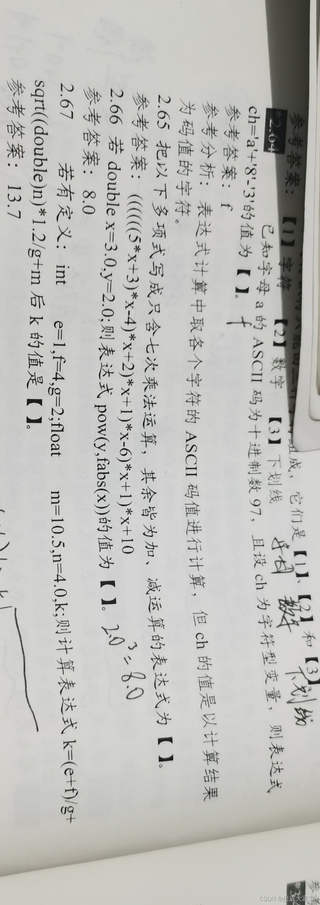 参考答案：【1】字符 【2】数字 【3】下划线
成，它们是【1】、【2】和【3】
字母 数字 下划线
2.64 已知字母 a 的 ASCII 码为十进制数 97，且设 ch 为字符型变量，则表达式
ch='a'+'8'-'3'的值为【 】。 f
参考答案：f
参考分析：表达式计算中取各个字符的 ASCII 码值进行计算，但 ch 的值是以计算结果
为码值的字符。
2.65 把以下多项式写成只含七次乘法运算，其余皆为加、减运算的表达式为【 】。
参考答案：((((((5*x+3)*x-4)*x+2)*x+1)*x-6)*x+1)*x+10
2.66 若 double x=3.0,y=2.0;则表达式 pow(y,fabs(x))的值为【 】。 2.0³=8.0
参考答案：8.0
2.67 若有定义：int e=1,f=4,g=2;float m=10.5,n=4.0,k;则计算表达式 k=(e+f)/g+
sqrt((double)n)*1.2/g+m 后 k 的值是【 】。
参考答案：13.7